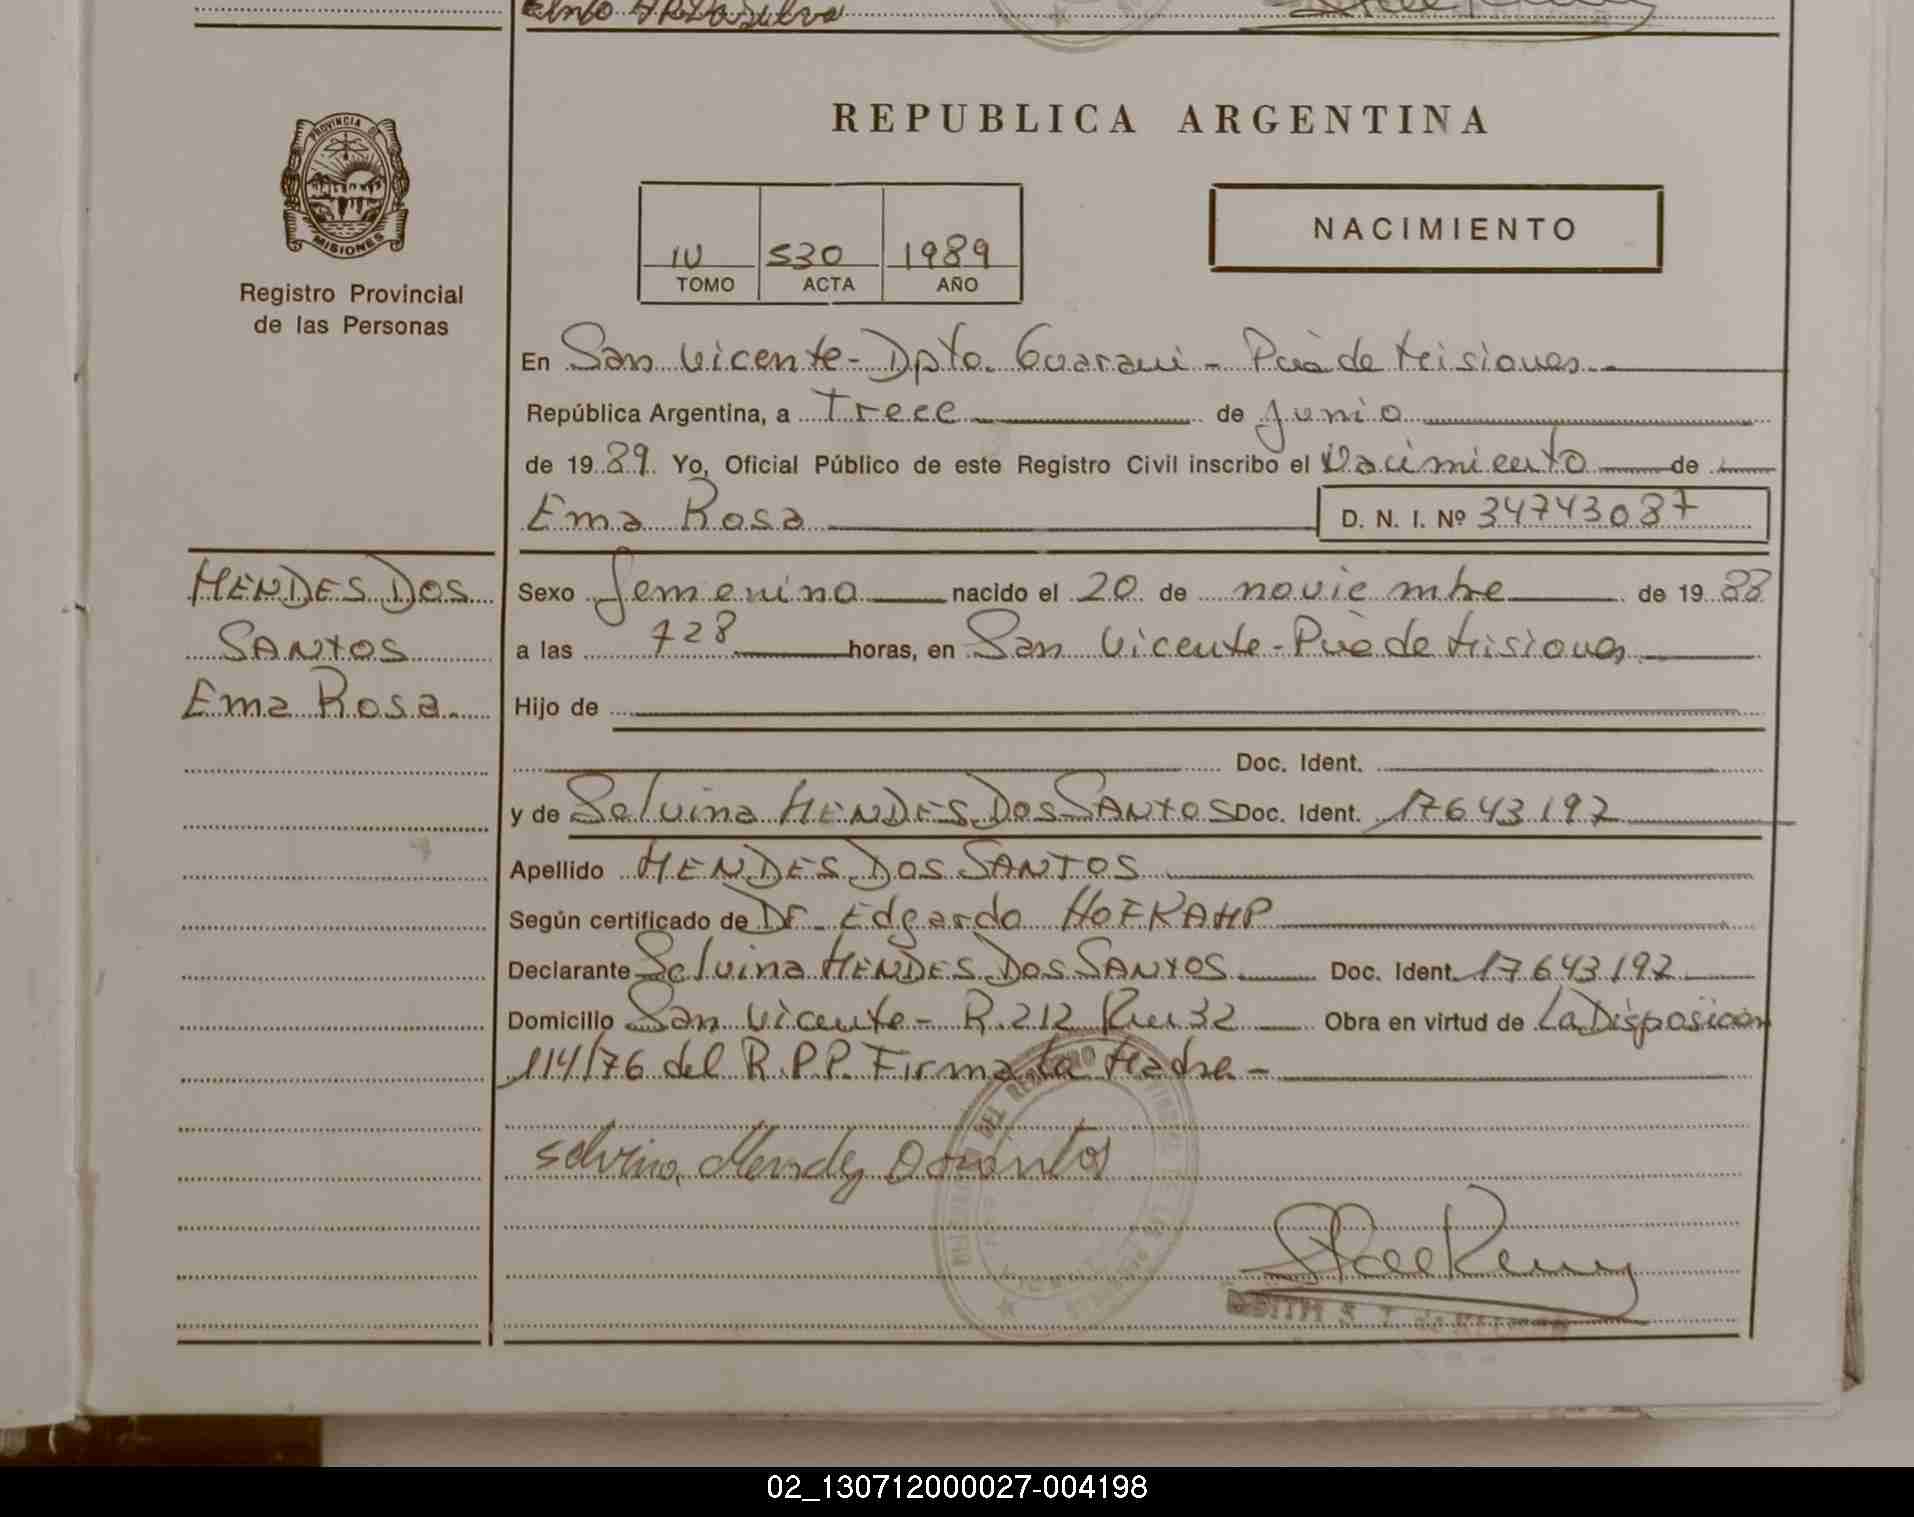 PROVINCIA DE
MISIONES
Registro Provincial
de las Personas
REPUBLICA ARGENTINA
IV 530 1989
TOMO ACTA AÑO
NACIMIENTO
En San Vicente - Dpto. Guarani - Pcia de Misiones
República Argentina, a Trece de Junio
de 1989 Yo, Oficial Público de este Registro Civil inscribo el Nacimiento de
Ema Rosa D. N. I. Nº 34743087
MENDES DOS
SANTOS
Ema Rosa
Sexo femenino nacido el 20 de noviembre de 1988
a las 728 horas, en San Vicente - Pcia de Misiones
Hijo de
Doc. Ident.
y de Selvina MENDES DOS SANTOS Doc. Ident. 17643192
Apellido MENDES DOS SANTOS
Según certificado de Dr. Edgardo
Declarante Selvina MENDES DOS SANTOS Doc. Ident. 17643192
Domicilio San Vicente - R. 212 Km 32 Obra en virtud de La Disposicion
114/76 del R.P.P. Firma la Madre -
02_130712000027-004198